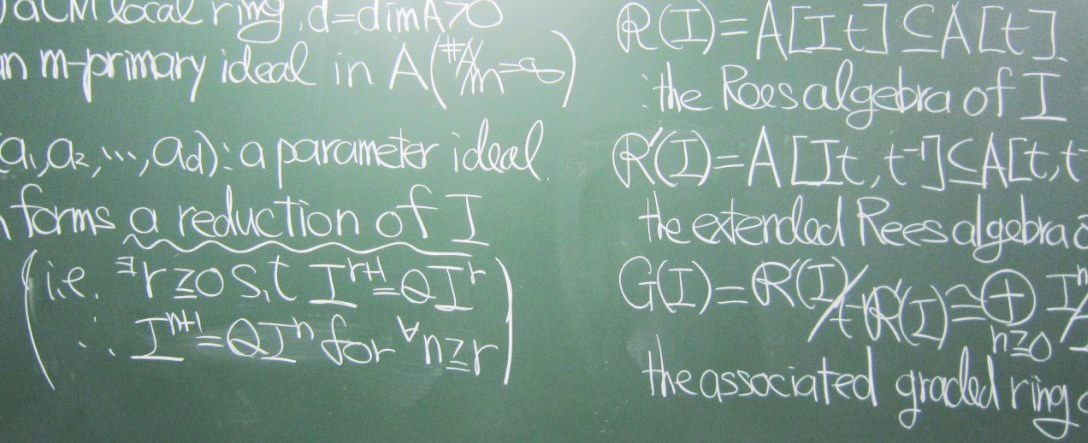 a CM local ring, d=dimA>0
an m-primary ideal in A(#A/m=∞)
(a₁,a₂,⋯,ad): a parameter ideal.
forms a reduction of I
(i.e. ∃r≥0 s.t Iʳ⁺¹=QIʳ
∴ Iⁿ⁺¹=QIⁿ for ∀n≥r)
R(I)=A[It]⊆A[t].
: the Rees algebra of I
R'(I)=A[It,t⁻¹]⊆A[t,t⁻
the extended Rees algebra
G(I)=R'(I)/t⁻¹R'(I)≅⊕n≥0 Iⁿ/
the associated graded ring